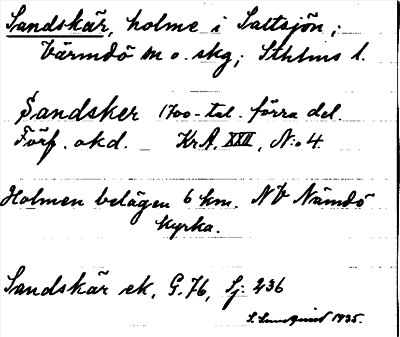 Sandskär, holme i Saltsjön;
Värmdö sn o. skg; Sthlms l.
Sandsker 1700-tal. förra del.
Förf. okd. KrA. XXII, N:o 4
Holmen belägen 6 km. NV Nämdö
kyrka.
Sandskär ek, G. 76, Sj: 236
S. Lundquist 1935.